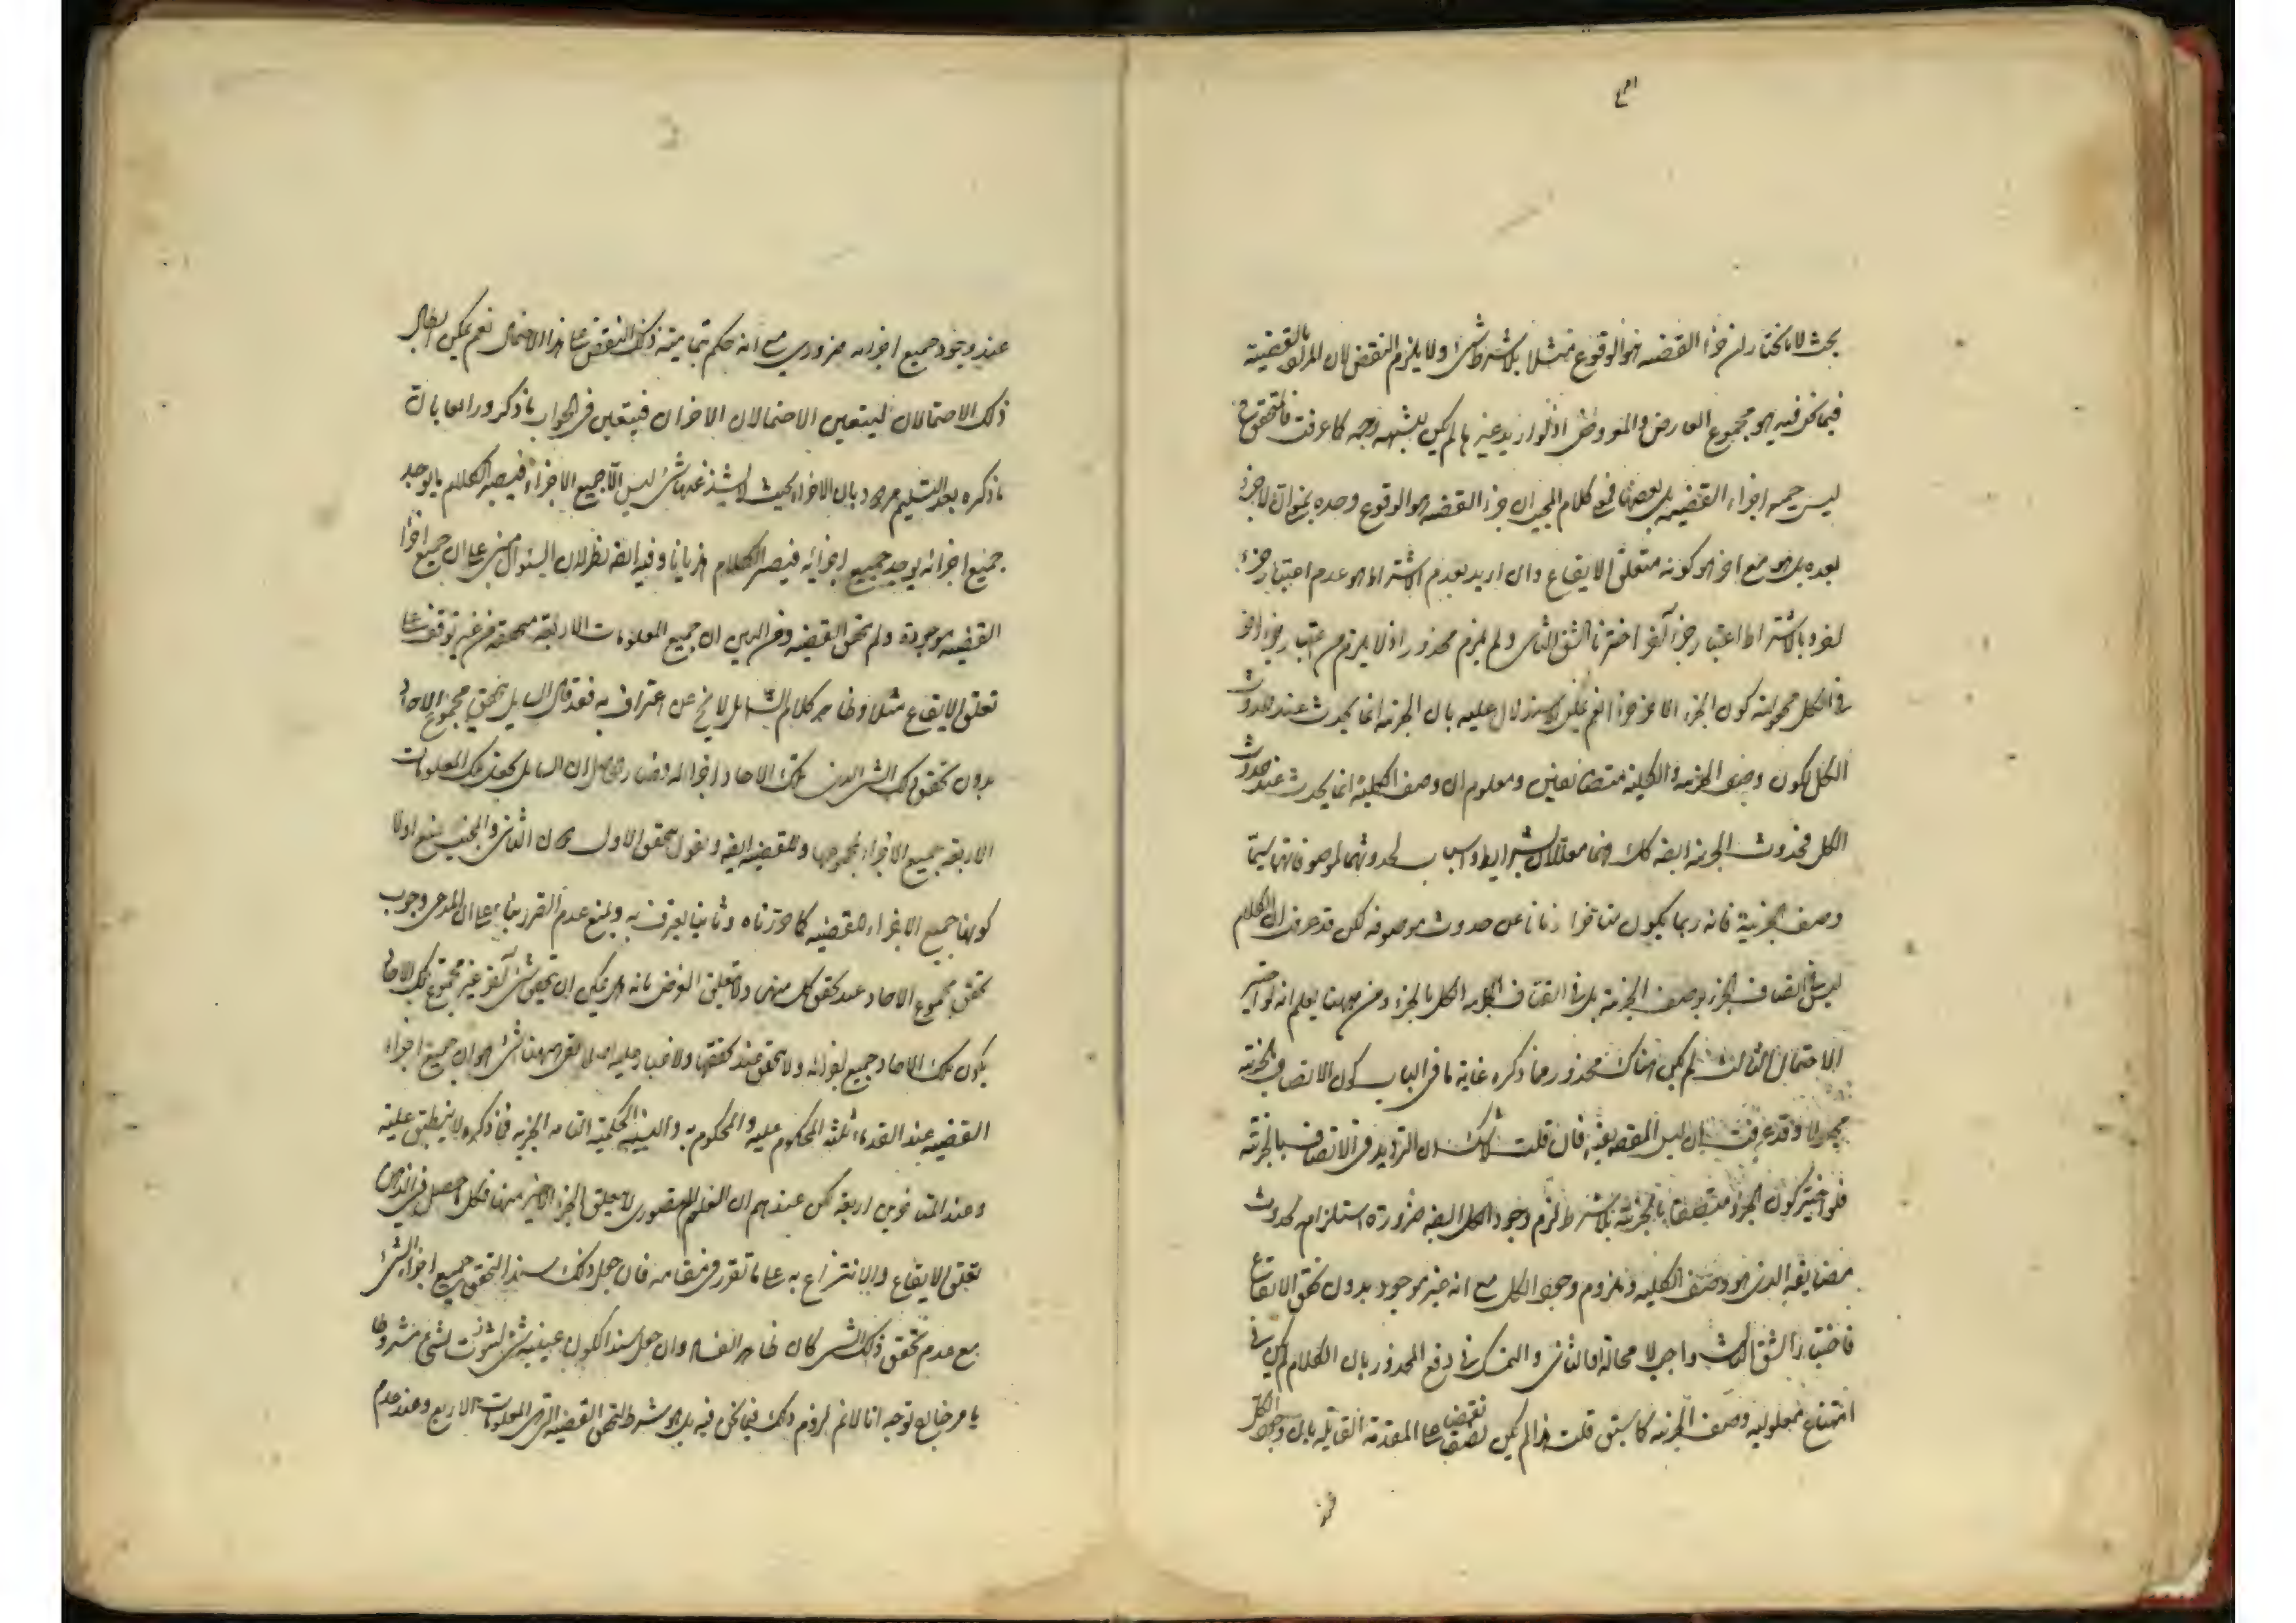 بحث لانا نختار ان جزء القضيه هو الوقوع مثلا بلا شرط شئ ولا يلزم النقض لان المراد بالقضية
فيما نحن فيه هو مجموع العارض والمعروض اذ لو اريد غيرها لم يكن للشبهة وجه كما عرفت فالمتحقق
ليس جميع اجزاء القضيه بل بعضها فمع كلام المجيب ان جزء القضيه هو الوقوع وحده لا جزء
بعده بل هو مع اخر هو كونه متعلق الايقاع وان اريد بعدم الاشتراط هو عدم اعتبار جزء
اخر وبالاشتراط اعتبار جزء آخر اخترنا الشق الثانى ولم يلزم محذور اذ لا يلزم من اعتبار جزء اخر
فى الكل مجعولية كون الجزء الاخر جزءا نعم يمكن الاستدلال عليه بان الجزئيه انما يحدث عند حدوث
الكل لكون وصف الجزئيه والكلية متضائفين ومعلوم ان وصف الكلية انما يحدث عند حدوث
الكل فحدوث الجزئيه ايضه كك فهما معللان بشرايط واسباب لحدوثهما لموصوفاتهما سيما
وصف الجزئية فانه ربما يكون متاخرا زمانا عن حدوث موصوفه لكن قد عرفت ان الكلام
ليس فى اتصاف الجزء بوصف الجزئيه بل فى اتصاف الكل بالجزء ومن ههنا يعلم انه لو اختير
الاحتمال الثالث لم يكن هناك محذور مما ذكره غاية ما فى الباب كون الاتصاف بالجزئية
مجعولا وقد عرفت ان ليس المقصود فان قلت لا شك ان الترديد فى الاتصاف بالجزئية
فلو اختير كون الجزء متصفا بالجزئية بلا شرط لزم وجود الكل ايضه ضرورة استلزامه لحدوث
مضايفه الذى هو وصف الكليه وملزوم وجود الكل مع انه غير موجود بدون تحقق الايقاع
فاختيار الشق الثالث واجب لا محالة او الثانى والتمسك فى دفع المحذور بان الكلام لم يكن فى
امتناع معلوليه وصف الجزئيه كما سبق قلت هذا لم يكن نقضا على المقدمة القايله بان وجود الكل
عند وجود جميع اجزائه ضرورى مع انه حكم بتماميته ذلك النقض على هذا الاحتمال نعم يمكن ابطال
ذلك الاحتمالان ليتعين الاحتمالان الاخران فيتعين فى الجواب ما ذكر ورابعا بان
ما ذكره بعد التسليم مردود بان الاجزاء بحيث لا يشذ عنها شئ ليس الا جميع الاجزاء فيصير الكلام ما يوجد
جميع اجزائه يوجد جميع اجزائه فيصير الكلام هذيانا وفيه ايضه نظر لان السئوال مبنى على ان جميع اجزاء
القضيه موجودة ولم يتحقق القضيه ومن البين ان جميع المعلومات الاربعه متحققه من غير توقف على
تعلق الايقاع مثلا وظاهر كلام السائل لا يخ عن اعتراف به فقد قال السايل بتحقق مجموع الاحاد
بدون تحقق ذلك الشئ الذى تلك الاحاد اجزائه وصار حاصله ان السايل يجعل تلك المعلومات
الاربعه جميع الاجزاء لمجموعها وللقضيه ايضه ويقول بتحقق الاول دون الثانى والمجيب يمنع اولا
كونها جميع الاجزاء للقضيه كما حررناه وثانيا يعترف به ويمنع عدم الضرر بناء على ان المدعى وجوب
تحقق مجموع الاحاد عند تحقق كل منها ولا يتعلق الغرض بانه هل يمكن ان يتحقق شئ آخر غير مجموع تلك الاحاد
يكون تلك الاحاد جميع اجزائه ولا يتحقق عند تحققها ولا غبار عليه اصلا بقى ههنا شئ هو ان جميع اجزاء
القضيه عند القدماء ثلثه المحكوم عليه والمحكوم به والنسبة الحكمية التامه الخبريه فما ذكره لا ينطبق عليه
وعند المتاخرين اربعه لكن عندهم ان العلم التصورى لا يتعلق بالجزء الاخير منها فكل ما حصل فى الذهن
تعلق الايقاع والانتزاع به على ما تقرر فى مقامه فان جعل ذلك سندا لتحقق جميع اجزاء الشئ
مع عدم تحقق ذلك الشئ كان ظاهر الفساد وان جعل سندا لكون عينية شئ لشئ او ثبوت لشئ مشروطا
بامر خارج توجه انا لانم لزوم ذلك فيما نحن فيه بل هو شرط لتحقق القضيه التى هى المعلومات الاربع وعند عدم